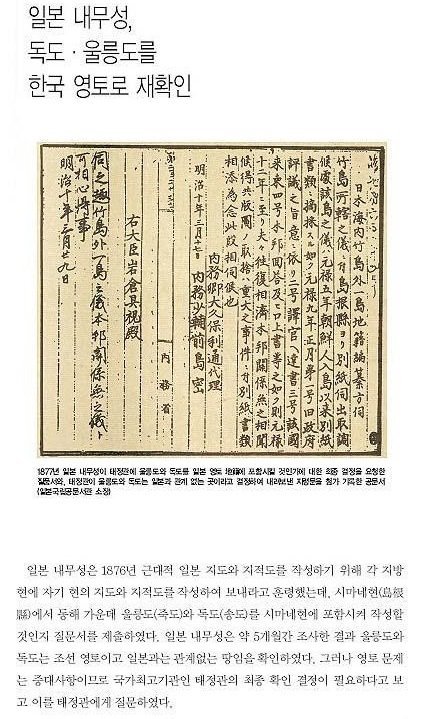 일본 내무성,
독도 · 울릉도를
한국 영토로 재확인
日本海内竹島外一島地籍編纂方伺
竹島所轄之儀ニ付島根縣ヨリ別紙伺出取調
候處該島之儀ハ元禄五年朝鮮人入島以来別紙
書類ニ摘採スル如ク元禄九年正月第一号旧政府
評議之旨意ニ依リ二号譯官ヘ達書三号該國
来柬四号本邦回答及ヒ口上書等之如ク則元禄
十二年ニ至リ夫々往復相濟本邦關係無之相聞
候得共版圖ノ取捨ハ重大之事件ニ付別紙書類
相添為念此段相伺候也
明治十年三月十七日
内務卿大久保利通代理
内務少輔前島密
右大臣岩倉具視殿
内務省
伺之趣竹島外一島之儀本邦関係無之儀ト
可相心得事
明治十年三月廿九日
1877년 일본 내무성이 태정관에 울릉도와 독도를 일본 영토 地籍에 포함시킬 것인가에 대한 최종 결정을 요청한
질문서와, 태정관이 울릉도와 독도는 일본과 관계 없는 곳이라고 결정하여 내려보낸 지령문을 첨가 기록한 공문서
(일본국립공문서관 소장)
일본 내무성은 1876년 근대적 일본 지도와 지적도를 작성하기 위해 각 지방
현에 자기 현의 지도와 지적도를 작성하여 보내라고 훈령했는데, 시마네현(島根
縣)에서 동해 가운데 울릉도(죽도)와 독도(송도)를 시마네현에 포함시켜 작성할
것인지 질문서를 제출하였다. 일본 내무성은 약 5개월간 조사한 결과 울릉도와
독도는 조선 영토이고 일본과는 관계없는 땅임을 확인하였다. 그러나 영토 문제
는 중대사항이므로 국가최고기관인 태정관의 최종 확인 결정이 필요하다고 보
고 이를 태정관에게 질문하였다.